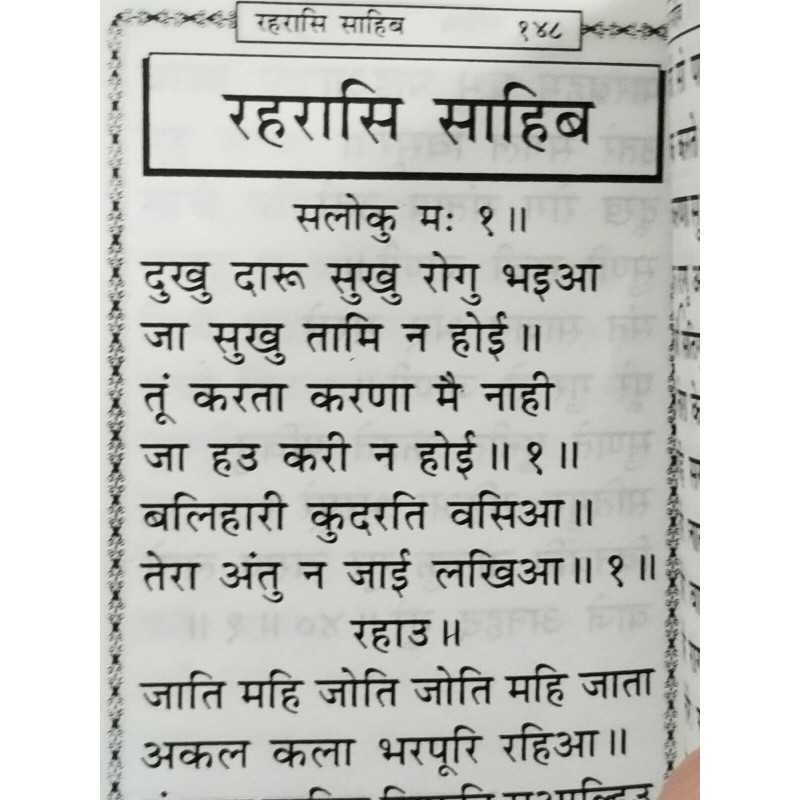 रहरासि साहिब १४८
रहरासि साहिब
सलोकु मः १॥
दुखु दारू सुखु रोगु भइआ
जा सुखु तामि न होई॥
तूं करता करणा मै नाही
जा हउ करी न होई॥ १॥
बलिहारी कुदरति वसिआ॥
तेरा अंतु न जाई लखिआ॥ १॥
रहाउ॥
जाति महि जोति जोति महि जाता
अकल कला भरपूरि रहिआ॥